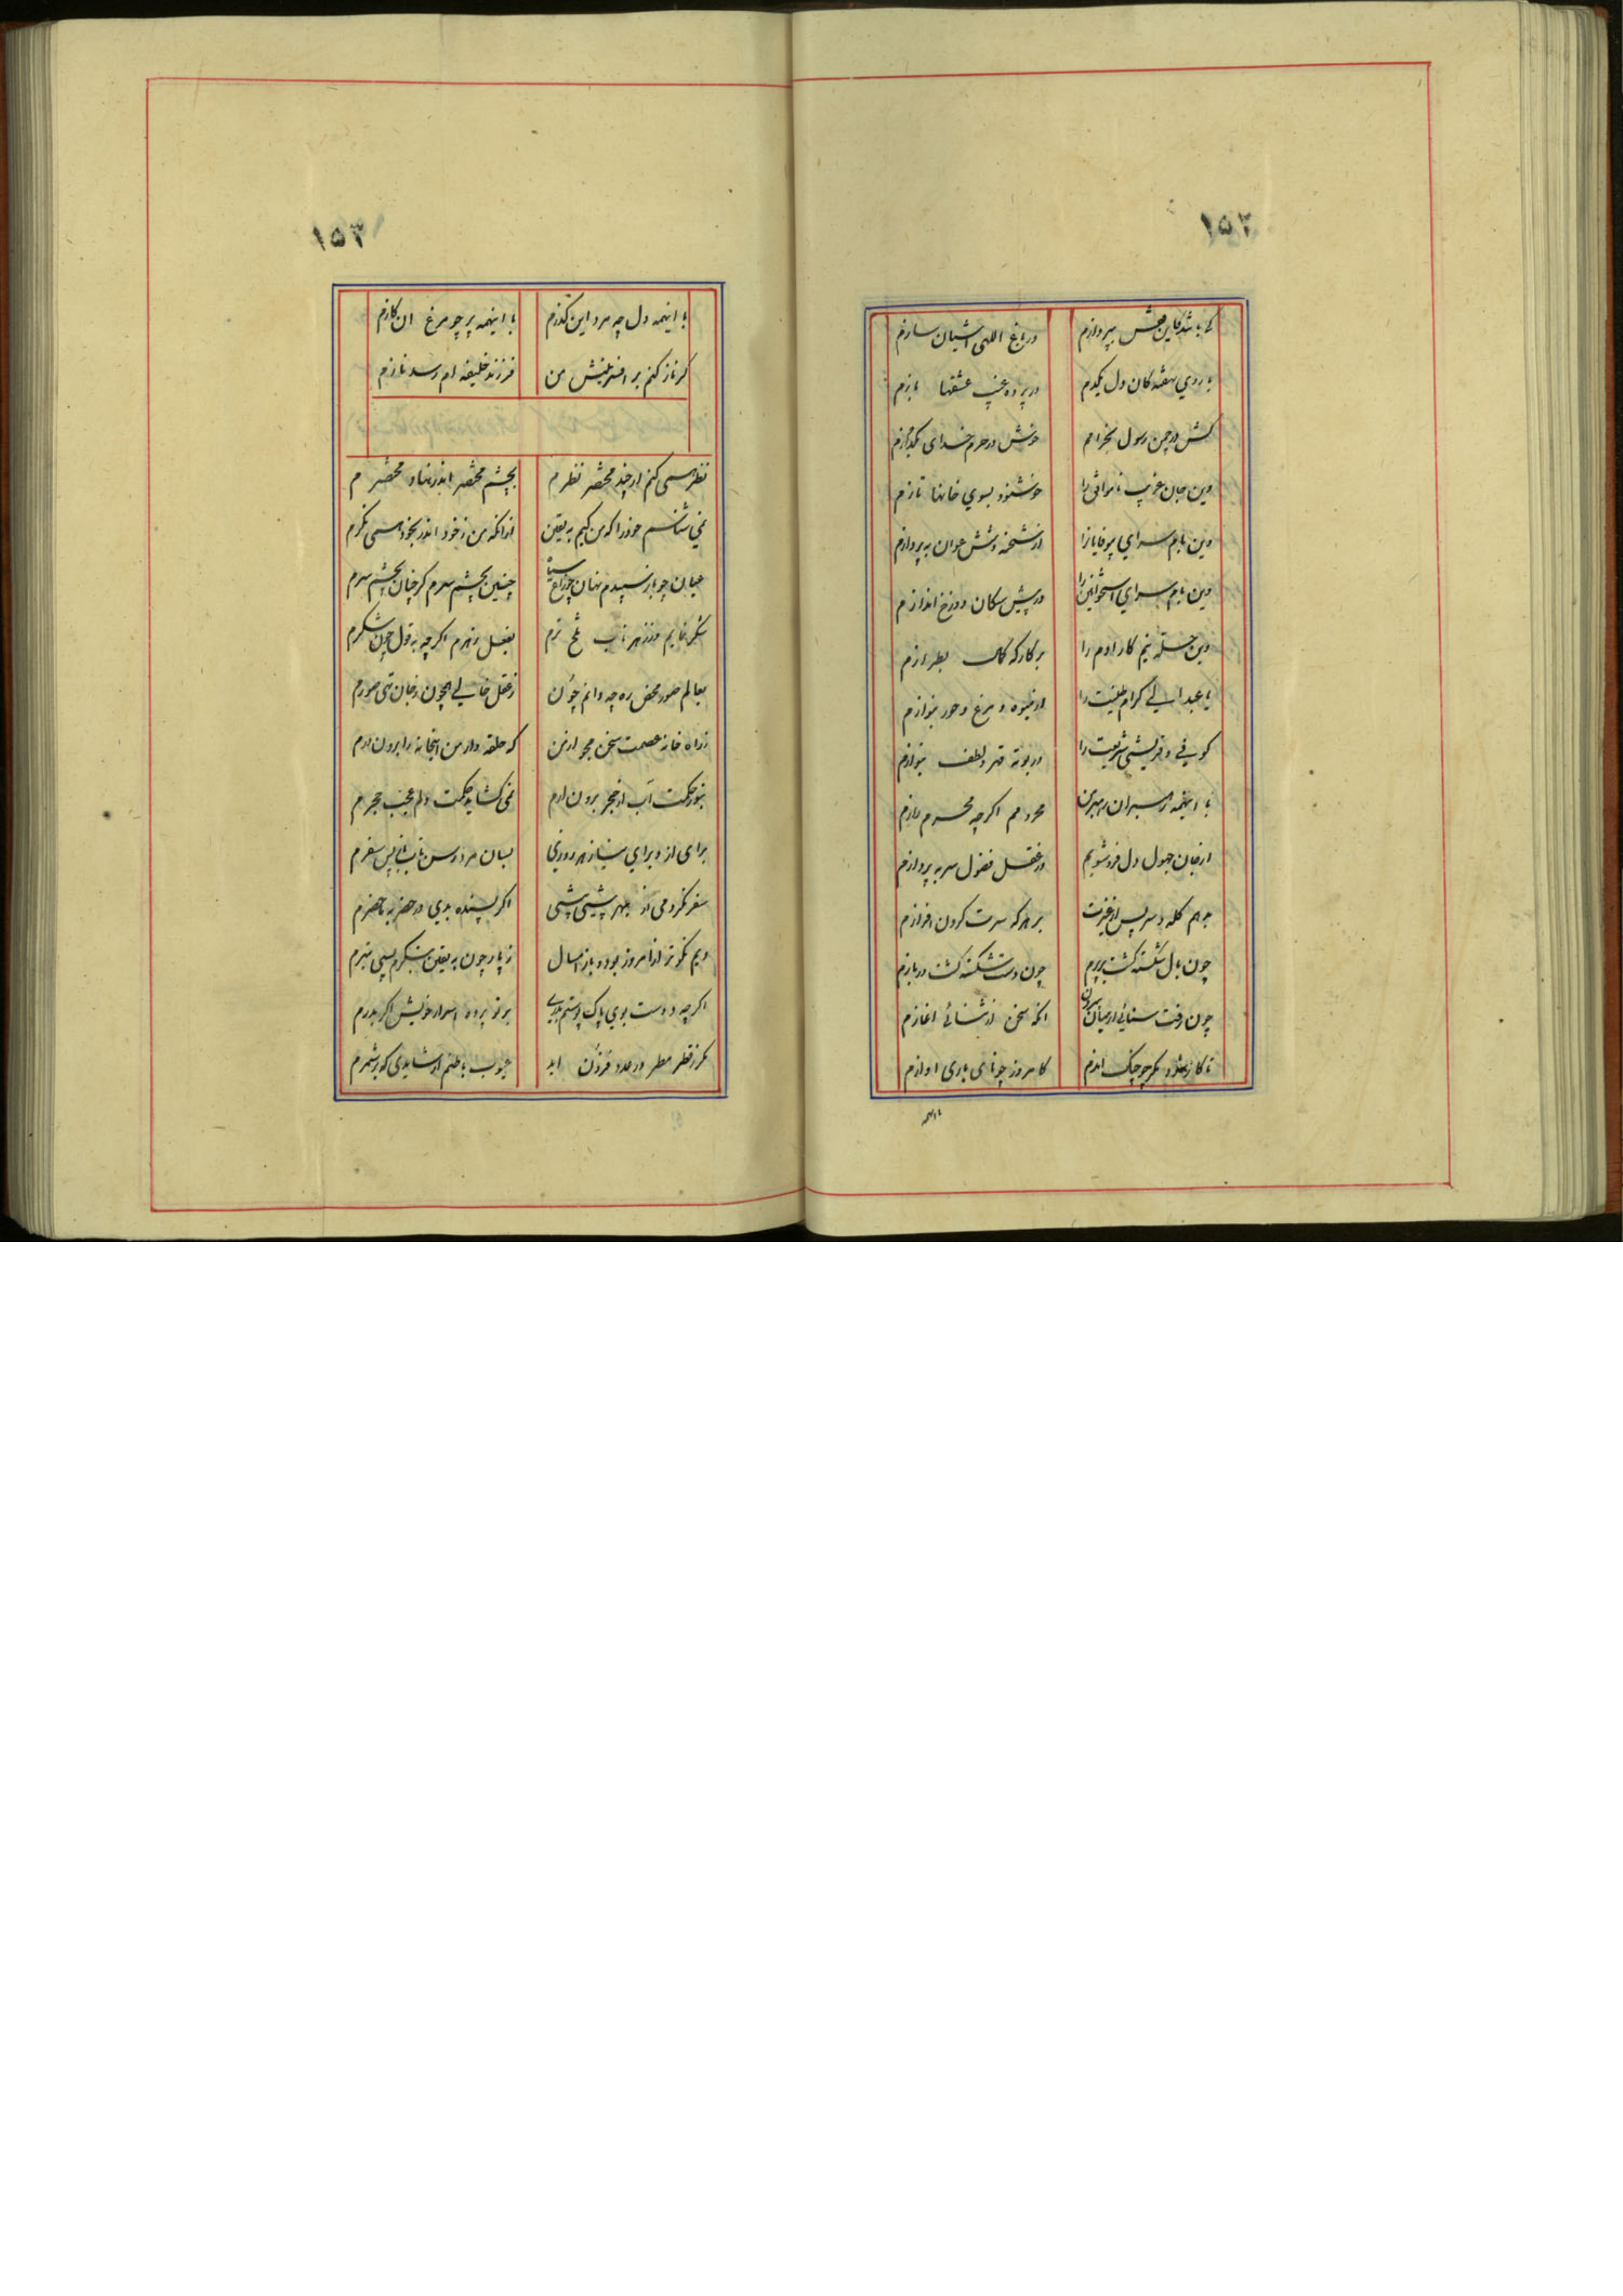 ۱۵۲
کی باشد کاین قفس بپردازم در باغ الهی آشیان سازم
با روی نهفتگان دل یکدم در پرده غیب عشقها بازم
کش در چمن رسول بخرامم خوش در حرم خدای بگرازم
وین جان غریب را خوشنود بسوی خانها تازم
وین دام سرای بیوفایانرا از شحنه و شش عوان به پردازم
وین دام سرای استخوانین را در پیش سکان دوزخ اندازم
وین جمله نیم کار ادم را بر کارکه کمال بطرازم
با عبدالهی کرام طینت را از میوه و مرغ و حور بنوازم
کوفی و قریشی شریعت را در بوته قهر و لطف بنوازم
با اینهمه رهبران رهبرین محرومم اکرچه محرم رازم
از جان جهول دل فرو شویم در عقل فضول سر به پردازم
بدهم کله و سر پس از غیرت بر هر که سرست کردن افرازم
چون بال شکسته کشت برپرم چون دست شکسته کشت دربازم
چون رفت سنائی از میان بیرون انکه سخن از سنائی اغازم
تا کار شود مکر چو چنک اندم کامروز چو نای بادی اوازم
بااینهمه
۱۵۳
با اینهمه دل چه مرد این کذرم با اینهمه پر چه مرغ ان کازم
کر ناز کنم بر افرینش من فرزند خلیفه ام رسد نازم
نظر همی کنم ار چند مختصر نظرم بچشم مختصر اندر نهاد مختصرم
نمی شناسم خودرا که من کیم به یقین از انکه من زخود اندر بخود همی نکرم
عیان چو باز سپیدم نهان چو زاغ سیاه چنین بچشم سرم کر چنان بچشم سرم
شکر نمایم وز زهر ناب تلخ ترم بفعل زهرم اکرچه به قول چون شکرم
بعالم صور محض ره چه دانم چون ز عقل خالی همچون ز جان تهی صورم
ز راه خانه عصمت سخن مجو از من که حلقه وار من اینخانه را برون درم
بنور حکمت آب از حجر برون ارم نمی کشاید حکمت دلم عجب حجرم
برای از و برای نیاز هر روزی بسان مردرسن تاب باز پس سفرم
سفر نکردمی از بهر بیشی پیشی اکر بسنده بدی در حضر به ماحضرم
دیم نکو تر از امروز بود و باز امسال ز پار چون به یقین بنکرم بسی بترم
اکرچه دوست بوی پاک پوستم بدری بر تو پرده اسرار خویش اکر بدرم
مکر ز قطر مطر در عدد فزون اید عیوب باطنم ار شایدی که بر شمرم